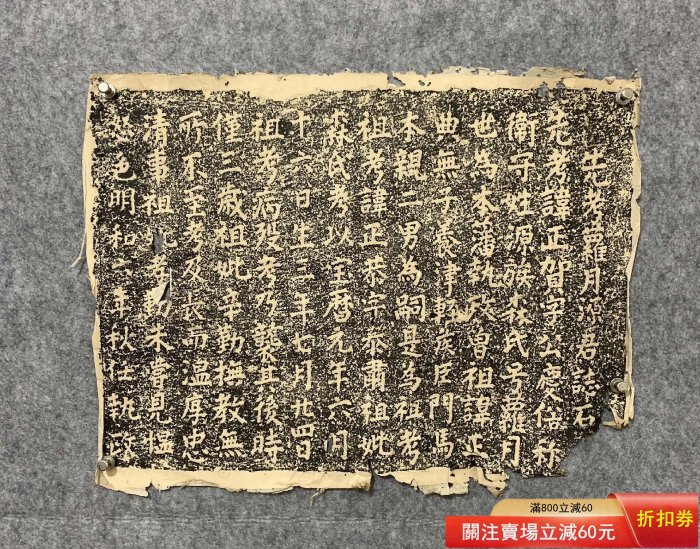 先考蘿月源君誌石
先考諱正賀字公慶俗称
衛守姓源森氏号蘿月
也為本藩執政曾祖諱正
典無子養津軽家臣門馬
本親二男為嗣是為祖考
祖考諱正恭字肅祖妣
森氏考以宝暦元年六月
十六日生三年七月廿四日
祖考病殁考乃襲其後時
僅二歳祖妣辛勤撫教無
所不至考及长而温厚忠
清事祖妣未嘗見慍
怒色明和年秋任執政
滿800立減60
關注賣場立減60元
折扣券